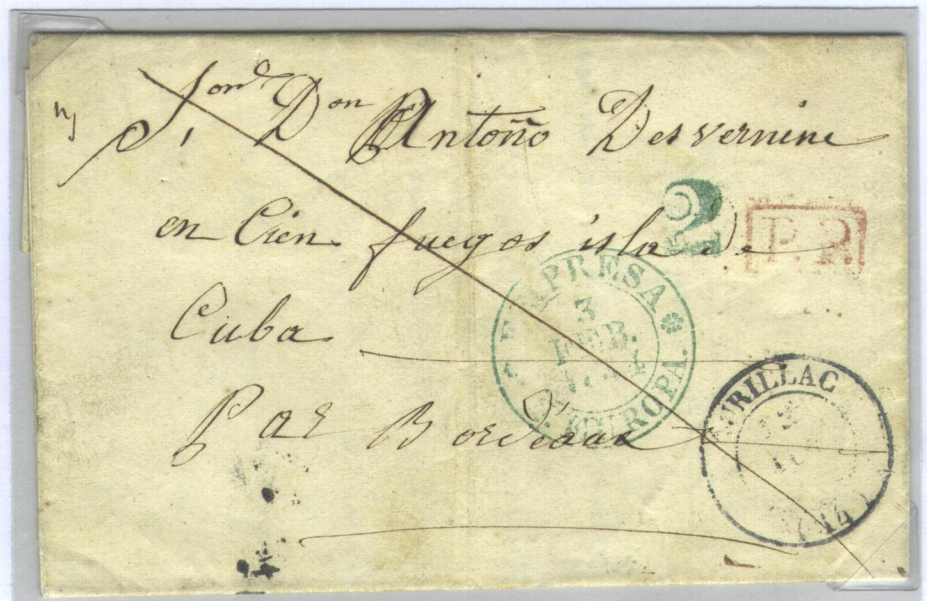 Don Antoño Desvernine
en Cien fuegos isla de
Cuba
Par Bordeaux
2
P.P.
EMPRESA
3
FEB.
EUROPA.
AURILLAC
(14)